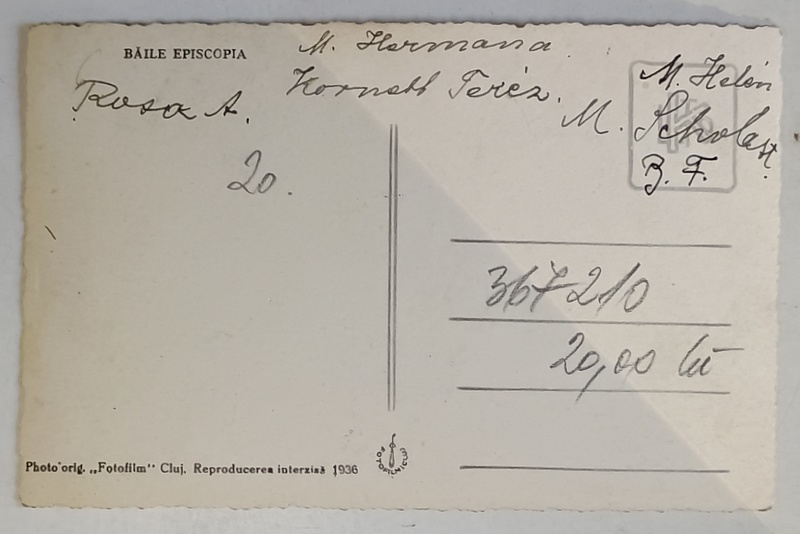 BĂILE EPISCOPIA
M. Hermana
Rosa A.
Kornett Teréz.
M. Helén
M. Scholast.
B. F.
20.
367210
20,00 lei
Photo orig. „Fotofilm" Cluj. Reproducerea interzisă 1936
FOTOFILM CLUJ